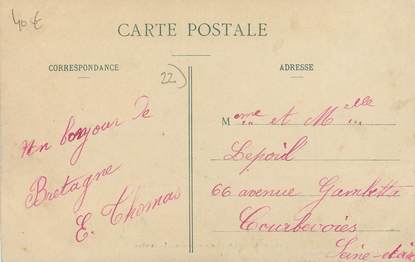 40 €
CARTE POSTALE
CORRESPONDANCE
ADRESSE
22)
Un bonjour de
Bretagne
E. Thomas
Meme et Melle
Lepoil
66 avenue Gambetta
Courbevoies
Seine-et-Oise